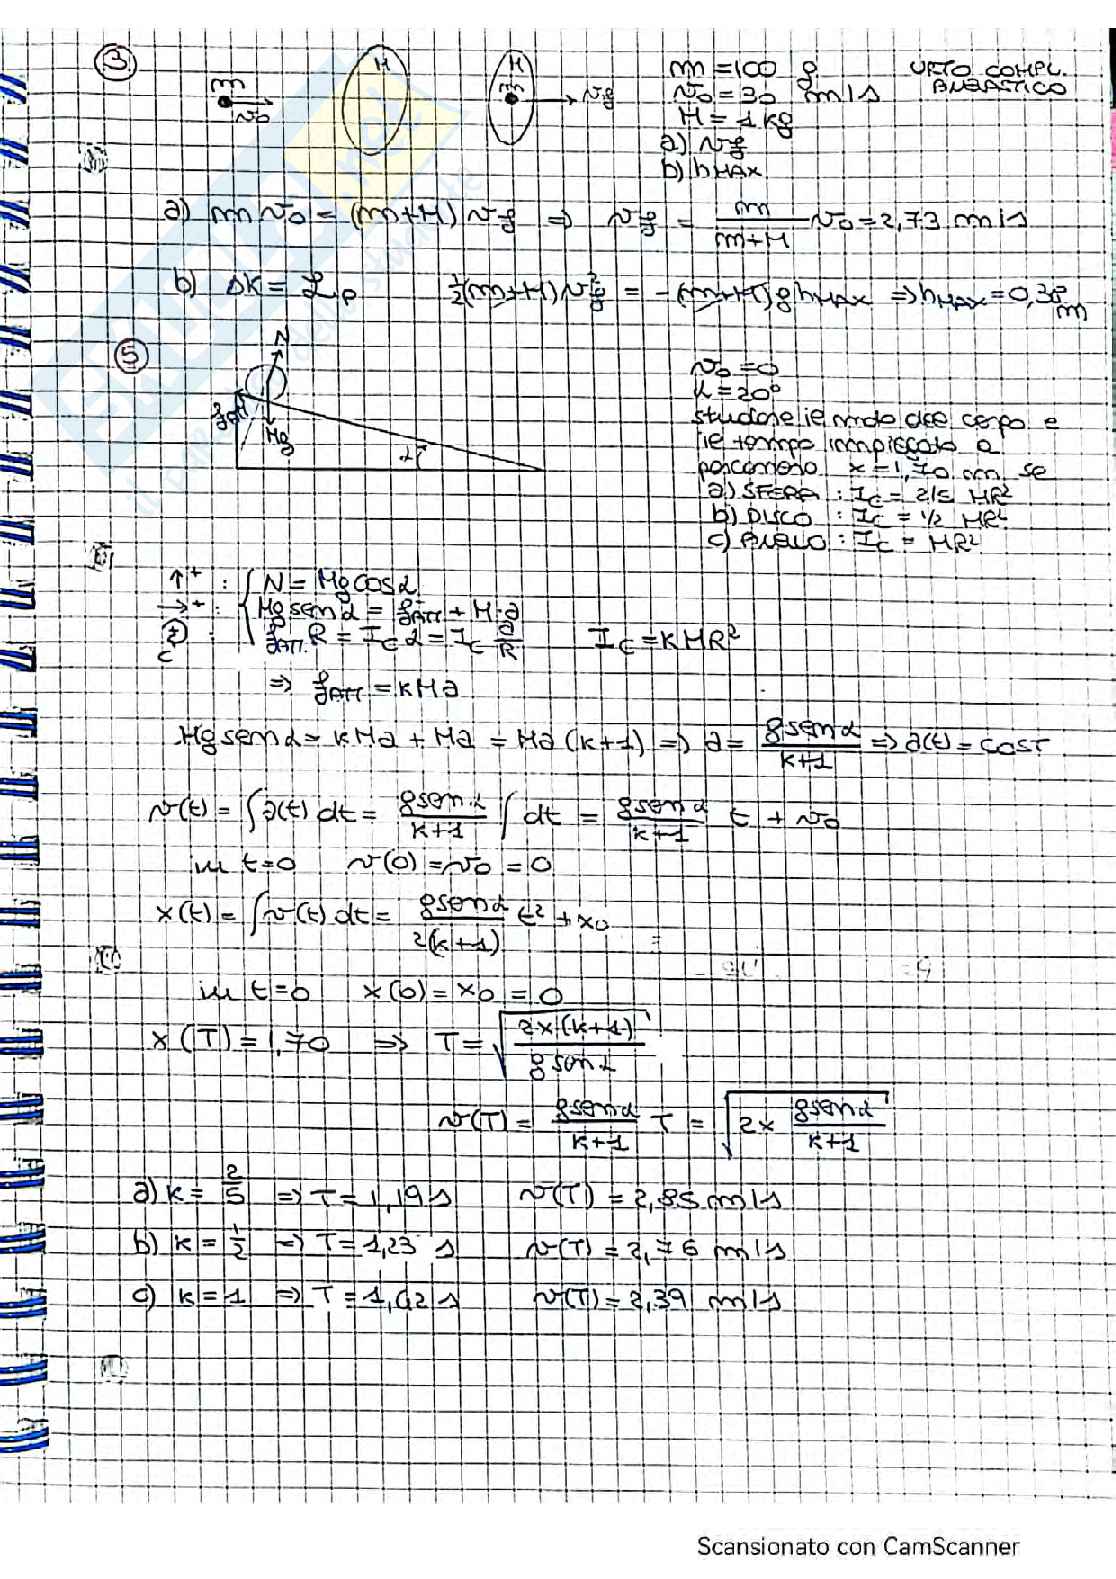 ③
m
v₀
M
M
m
v_f
m = 100 g
URTO COMPL. ANELASTICO
v₀ = 30 m/s
M = 1 kg
a) v_f
b) h_MAX
a) m v₀ = (m+M) v_f ⇒ v_f = m/(m+M) v₀ = 2,73 m/s
b) ΔK = ℒ_P ½(m+M)v_f² = -(m+M)g h_MAX ⇒ h_MAX = 0,38 m
⑤
N
f_ATT
Mg
α
v₀ = 0
α = 20°
studare il moto del corpo e
il tempo impiegato a
percorrendo x = 1,70 m se
a) SFERA : I_C = 2/5 MR²
b) DISCO : I_C = 1/2 MR²
c) ANELLO : I_C = MR²
↑+ : { N = Mg cos α
→+ : Mg sen α = f_ATT + M·a
C : f_ATT. R = I_C α = I_C a/R I_C = KMR²
⇒ f_ATT = KMa
Mg sen α = KMa + Ma = Ma(K+1) ⇒ a = g sen α/(K+1) ⇒ a(t) = COST
v(t) = ∫a(t) dt = g sen α/(K+1) ∫ dt = g sen α/(K+1) t + v₀
in t=0 v(0) = v₀ = 0
x(t) = ∫v(t) dt = g sen α/2(K+1) t² + x₀
in t=0 x(0) = x₀ = 0
x(T) = 1,70 ⇒ T = √(2x(K+1)/g sen α)
v(T) = g sen α/(K+1) T = √(2x g sen α/(K+1))
a) K = 2/5 ⇒ T = 1,19 s v(T) = 2,85 m/s
b) K = 1/2 ⇒ T = 1,23 s v(T) = 2,76 m/s
c) K = 1 ⇒ T = 1,42 s v(T) = 2,39 m/s
Scansionato con CamScanner